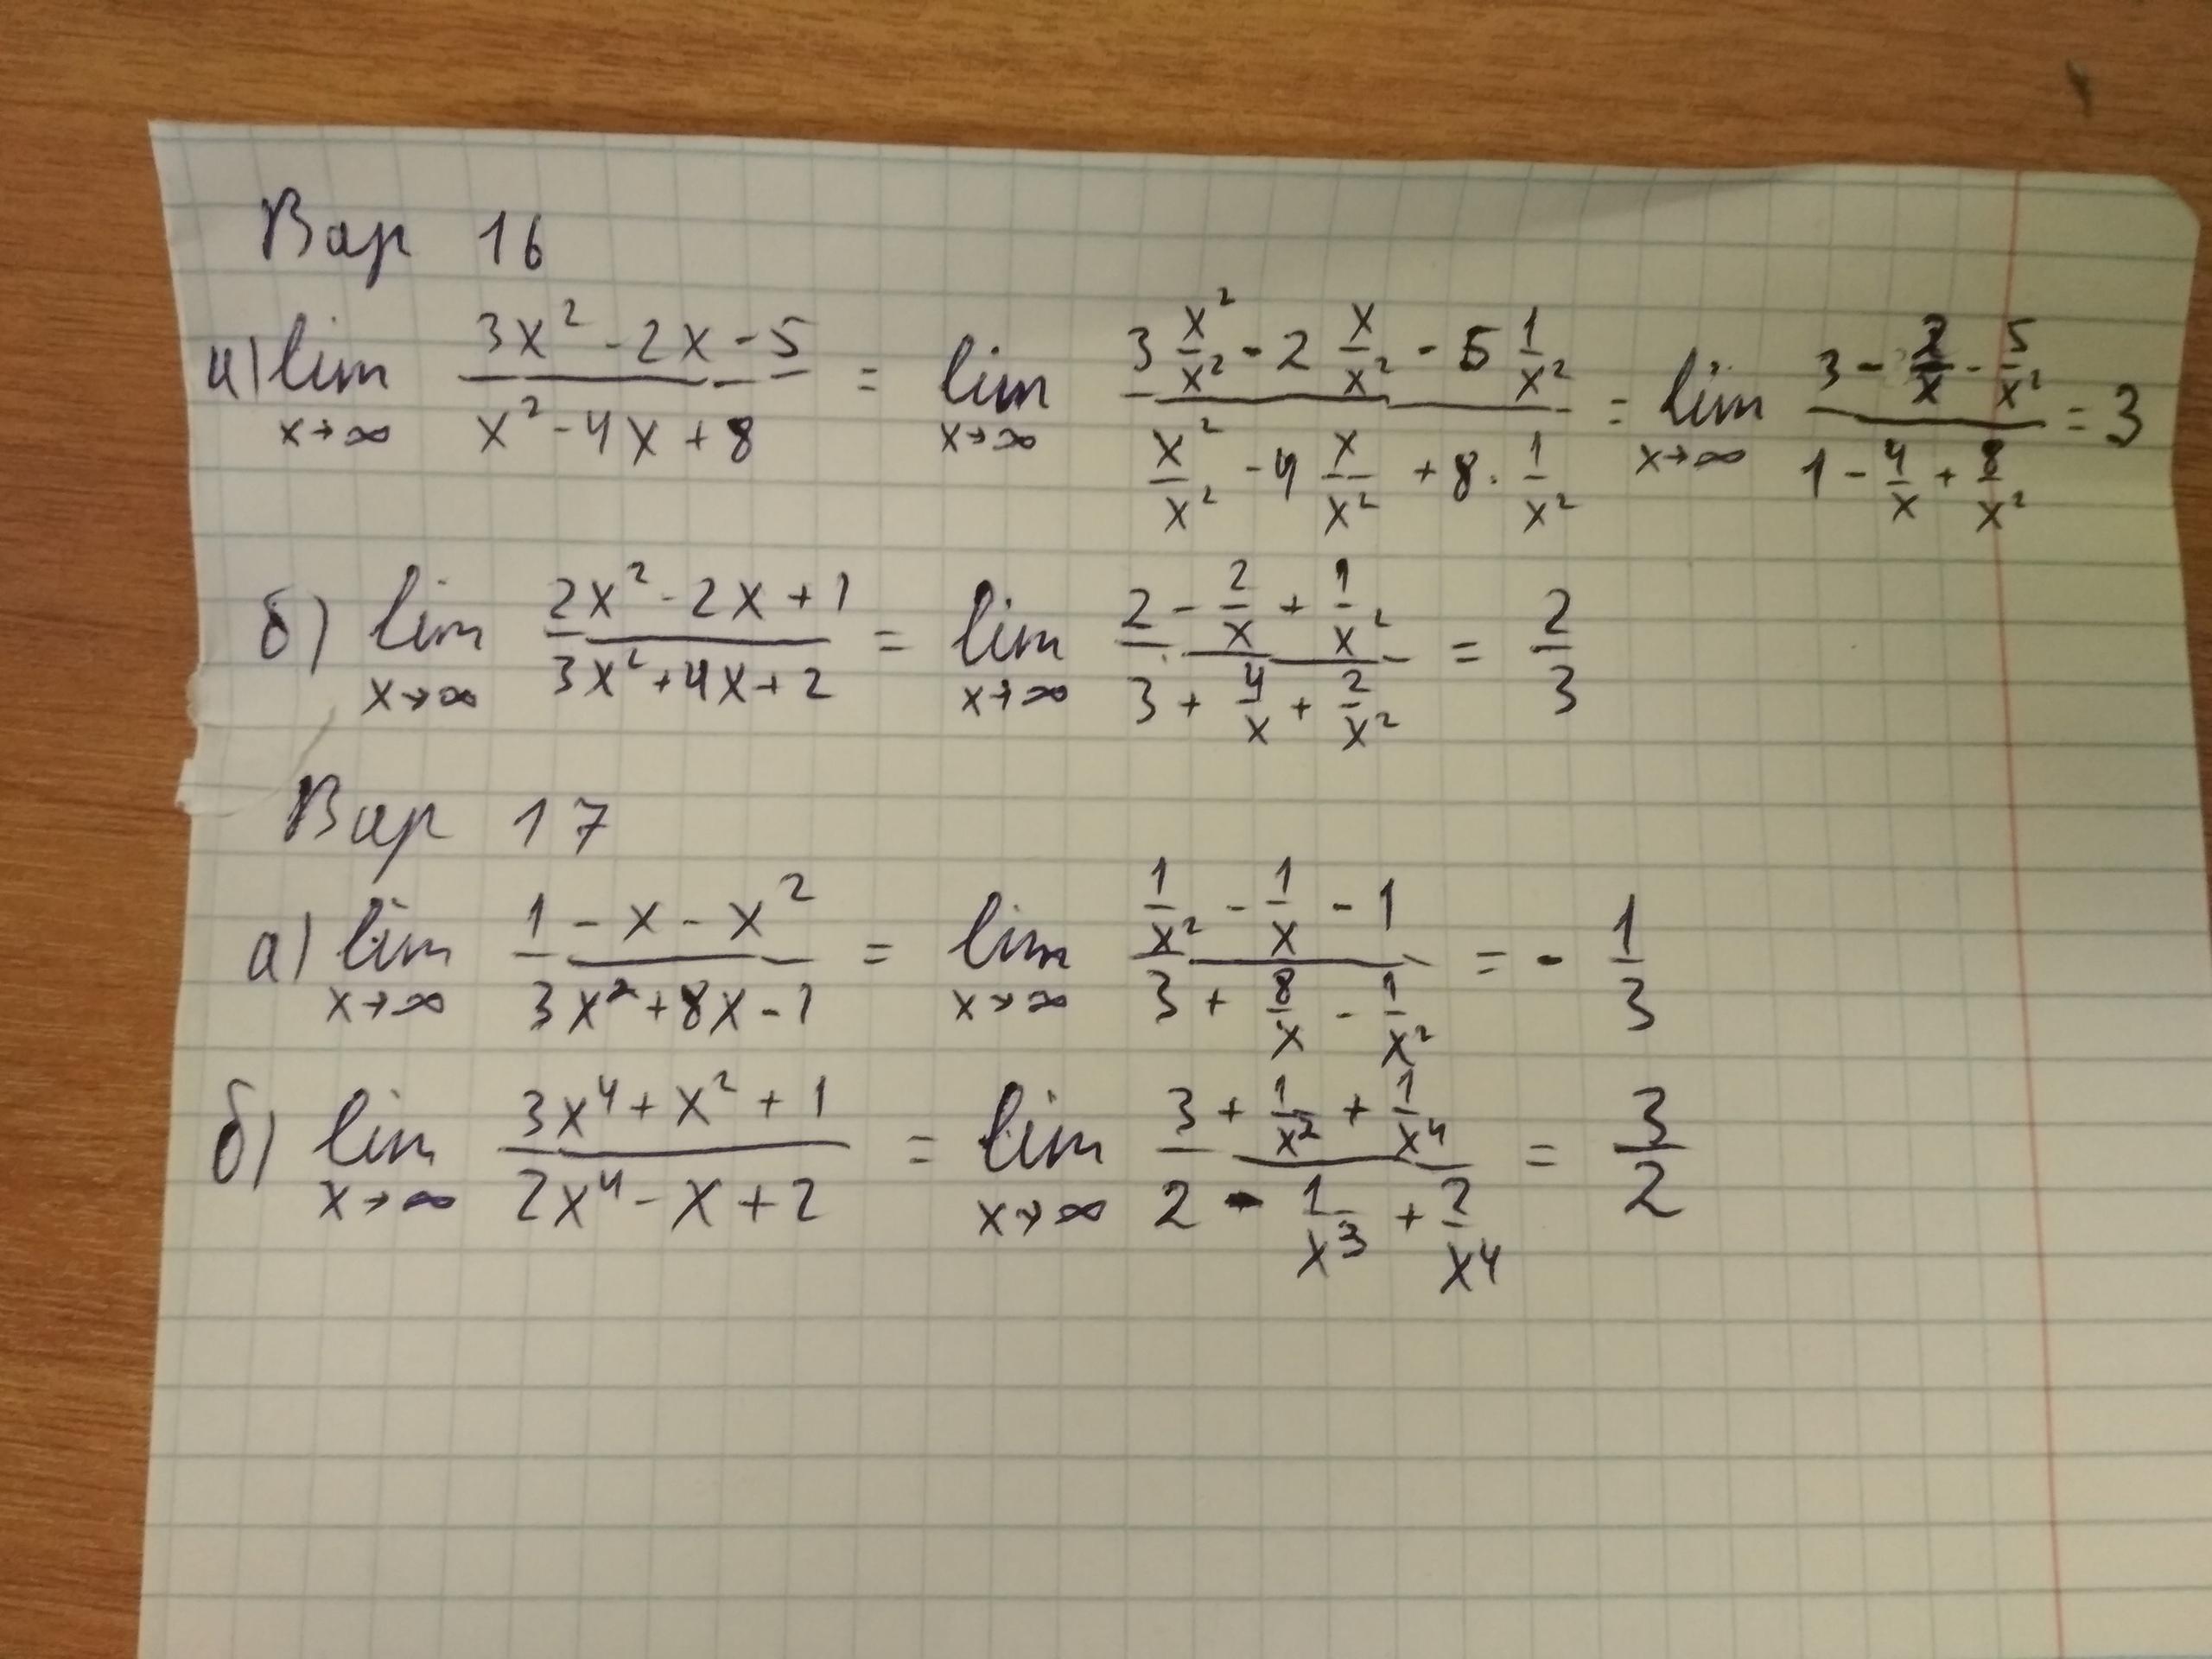 Вар 16
а) lim x→∞ (3x² - 2x - 5)/(x² - 4x + 8) = lim x→∞ (3 x²/x² - 2 x/x² - 5 1/x²)/(x²/x² - 4 x/x² + 8 · 1/x²) = lim x→∞ (3 - 2/x - 5/x²)/(1 - 4/x + 8/x²) = 3
б) lim x→∞ (2x² - 2x + 1)/(3x² + 4x + 2) = lim x→∞ (2 - 2/x + 1/x²)/(3 + 4/x + 2/x²) = 2/3
Вар 17
а) lim x→∞ (1 - x - x²)/(3x² + 8x - 1) = lim x→∞ (1/x² - 1/x - 1)/(3 + 8/x - 1/x²) = - 1/3
б) lim x→∞ (3x⁴ + x² + 1)/(2x⁴ - x + 2) = lim x→∞ (3 + 1/x² + 1/x⁴)/(2 - 1/x³ + 2/x⁴) = 3/2